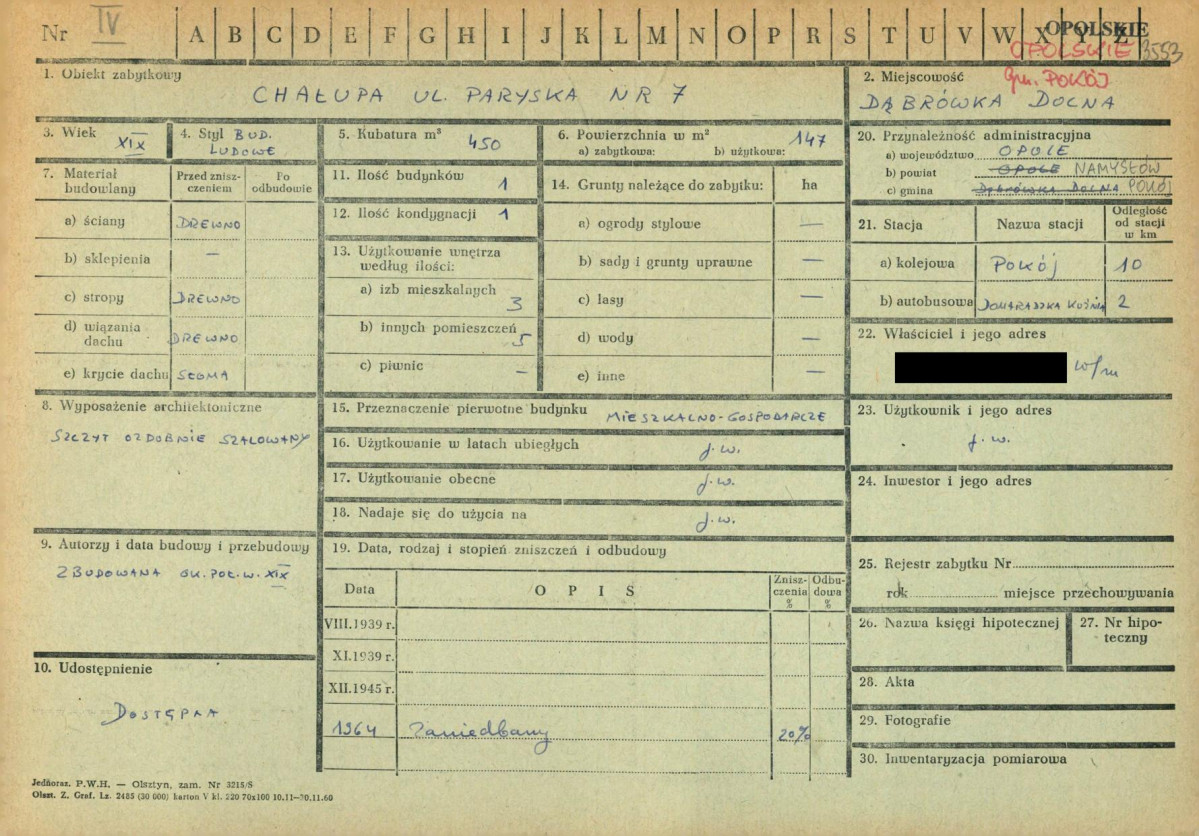 Nr IV A B C D E F G H I J K L M N O P R S T U V W X Y Z OPOLSKIE
OPOLSKIE 3553
gm. POKÓJ
1. Obiekt zabytkowy
CHAŁUPA UL. PARYSKA NR 7
2. Miejscowość
DĄBRÓWKA DOLNA
3. Wiek
XIX
4. Styl BUD.
LUDOWE
5. Kubatura m³
450
6. Powierzchnia w m²
a) zabytkowa: b) użytkowa: 147
7. Materiał budowlany
Przed zniszczeniem
Po odbudowie
a) ściany DREWNO
b) sklepienia —
c) stropy DREWNO
d) wiązania dachu DREWNO
e) krycie dachu SŁOMA
8. Wyposażenie architektoniczne
SZCZYT OZDOBNIE SZALOWANY
9. Autorzy i data budowy i przebudowy
ZBUDOWANA OK. POŁ. W. XIX
10. Udostępnienie
DOSTĘPNA
11. Ilość budynków 1
12. Ilość kondygnacji 1
13. Użytkowanie wnętrza
według ilości:
a) izb mieszkalnych 3
b) innych pomieszczeń 5
c) piwnic —
14. Grunty należące do zabytku: ha
a) ogrody stylowe —
b) sady i grunty uprawne —
c) lasy —
d) wody —
e) inne —
15. Przeznaczenie pierwotne budynku MIESZKALNO-GOSPODARCZE
16. Użytkowanie w latach ubiegłych j.w.
17. Użytkowanie obecne j.w.
18. Nadaje się do użycia na j.w.
19. Data, rodzaj i stopień zniszczeń i odbudowy
Data OPIS Zniszczenia % Odbudowa %
VIII.1939 r.
XI.1939 r.
XII.1945 r.
1964 Zaniedbany 20%
20. Przynależność administracyjna
a) województwo OPOLE
b) powiat OPOLE NAMYSŁÓW
c) gmina DĄBRÓWKA DOLNA POKÓJ
21. Stacja Nazwa stacji Odległość od stacji w km
a) kolejowa POKÓJ 10
b) autobusowa 2
22. Właściciel i jego adres
w/m
23. Użytkownik i jego adres
j.w.
24. Inwestor i jego adres
25. Rejestr zabytku Nr
rok miejsce przechowywania
26. Nazwa księgi hipotecznej
27. Nr hipoteczny
28. Akta
29. Fotografie
30. Inwentaryzacja pomiarowa
Jednoraz. P.W.H. — Olsztyn, zam. Nr 3215/S
Olszt. Z. Graf. Lz. 2485 (30 000) karton V kl. 220 70x100 10.11—30.11.60